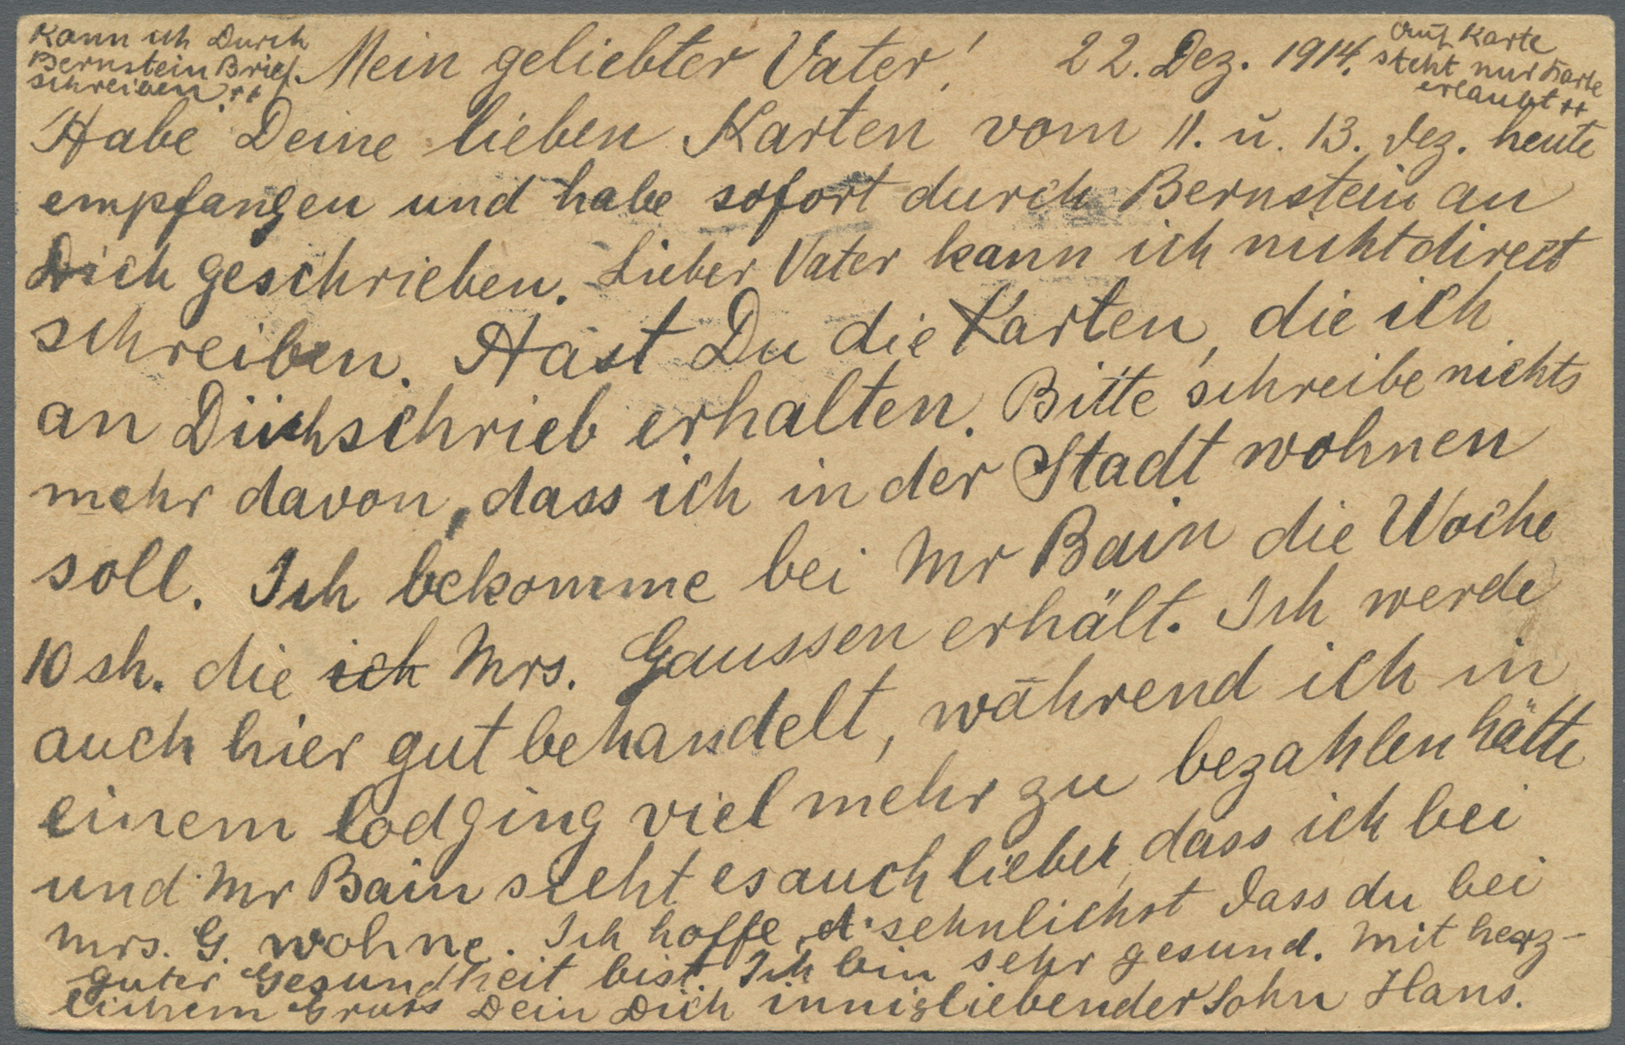 Kann ich durch
Bernstein Brief
schreiben ++
Mein geliebter Vater! 22. Dez. 1914.
Auf Karte
steht nur Karte
erlaubt ++
Habe Deine lieben Karten vom 11. u. 13. Dez. heute
empfangen und habe sofort durch Bernstein an
Dich geschrieben. Lieber Vater kann ich nicht direct
schreiben. Hast Du die Karten, die ich
an Dich schrieb erhalten. Bitte schreibe nichts
mehr davon, dass ich in der Stadt wohnen
soll. Ich bekomme bei Mr Bain die Woche
10 sh. die ich Mrs. Gaussen erhält. Ich werde
auch hier gut behandelt, während ich in
einem lodging viel mehr zu bezahlen hätte
und Mr Bain sieht es auch lieber, dass ich bei
Mrs. G. wohne. Ich hoffe sehnlichst dass du bei
guter Gesundheit bist. Ich bin sehr gesund. Mit herz-
lichem Gruss Dein Dich innigliebender Sohn Hans.